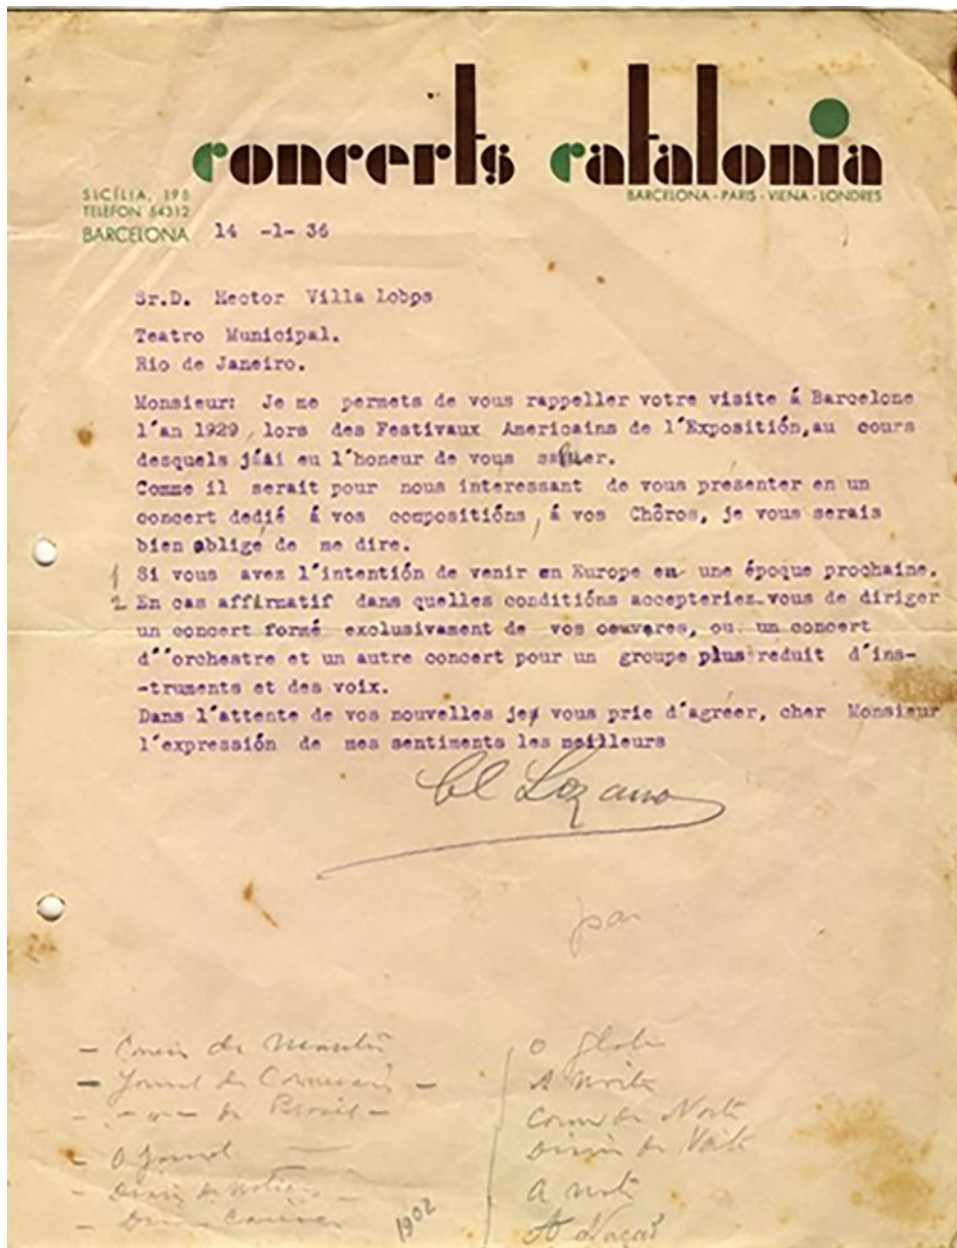 concerts catalonia
BARCELONA - PARIS - VIENA - LONDRES
SICÍLIA, 198
TELEFON 54312
BARCELONA 14 -1- 36
Sr.D. Hector Villa Lobps
Teatro Municipal.
Rio de Janeiro.
Monsieur: Je me permets de vous rappeller votre visite á Barcelone
l'an 1929, lors des Festivaux Americains de l'Expositión,au cours
desquels j'ái eu l'honeur de vous saluer.
Comme il serait pour nous intéressant de vous présenter en un
concert dedié á vos compositións, á vos Chôros, je vous serais
bien obligé de me dire.
1 Si vous aves l'intentión de venir en Europe en une époque prochaine.
2 En cas affirmatif dans quelles conditións accepteriez-vous de diriger
un concert formé exclusivament de vos oeuveres, ou un concert
d''orchestre et un autre concert pour un groupe plus reduit d'ins-
-truments et des voix.
Dans l'attente de vos nouvelles je vous prie d'agréer, cher Monsieur
l'expressión de mes sentiments les meilleurs
Lozano
- Jornal do
- O Jornal
1902
O Globo
A Noite
Diario da Noite
A Nação